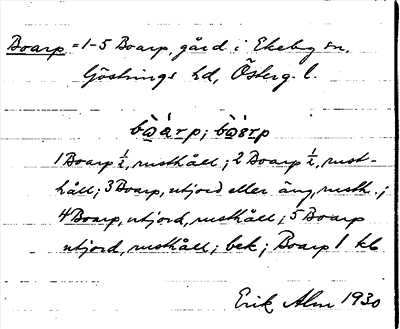 Boarp = 1-5 Boarp, gård i Ekeby sn.
Göstrings hd, Österg. l.
1 Boarp ½, rusthåll; 2 Boarp ½, rust-
håll; 3 Boarp, utjord eller äng, rusth.;
4 Boarp, utjord, rusthåll; 5 Boarp
utjord, rusthåll; bek; Boarp 1 kb
Erik Alm 1930